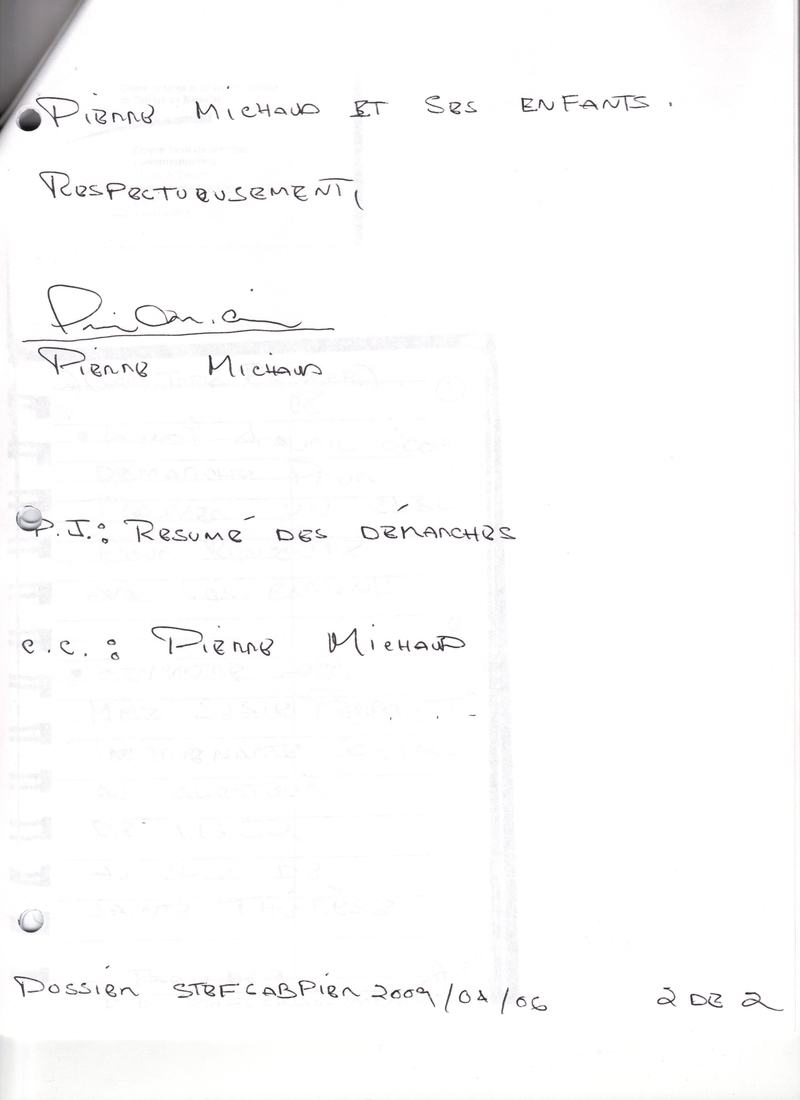 PIERRE MICHAUD ET SES ENFANTS.
RESPECTUEUSEMENT,
PIERRE MICHAUD
P.J.: RESUMÉ DES DÉMARCHES
c.c.: PIERRE MICHAUD
DOSSIER STEFCABPIER 2009/04/06 2 DE 2